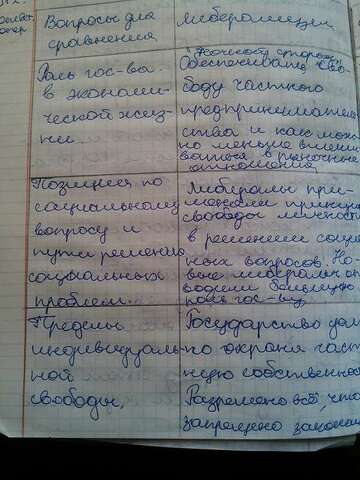 Вопросы для
сравнения
либерализм
Роль гос-ва
в экономи-
ческой жиз-
ни.
"Ночной сторож"
Обеспечивать сво-
боду частного
предприниматель-
ства и как мож-
но меньше вмеши-
ваться в рыночные
отношения
Позиция по
социальному
вопросу и
пути решения
социальных
проблем.
Либералы при-
меняли принцип
свободы личности
в решении соци
ных вопросов. Но-
вые либералы от
водили большую
роль гос-ву
Пределы
индивидуаль-
ной
свободы.
Государство дол
но охраня част
ную собственнос
Разрешено всё, что
запрещено законом